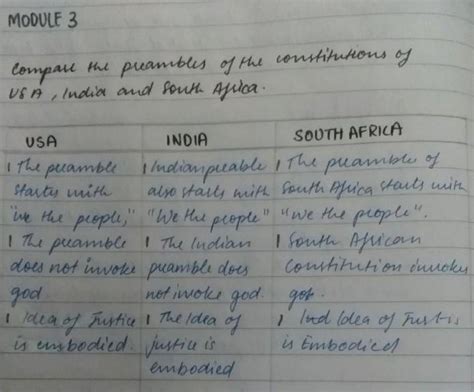 MODULE 3
Compare the preambles of the constitutions of
USA, India and South Africa.
USA
INDIA
SOUTH AFRICA
1 The preamble
starts with
"we the people,"
1 The preamble
does not invoke
god.
1 Idea of Justice
is embodied.
1 Indian preable
also starts with
"We the people"
1 The Indian
preamble does
not invoke god.
1 The Idea of
justice is
embodied
1 The preamble of
South Africa starts with
"We the people".
1 South African
Constitution invokes
god.
1 Idea of Justis
is Embodied